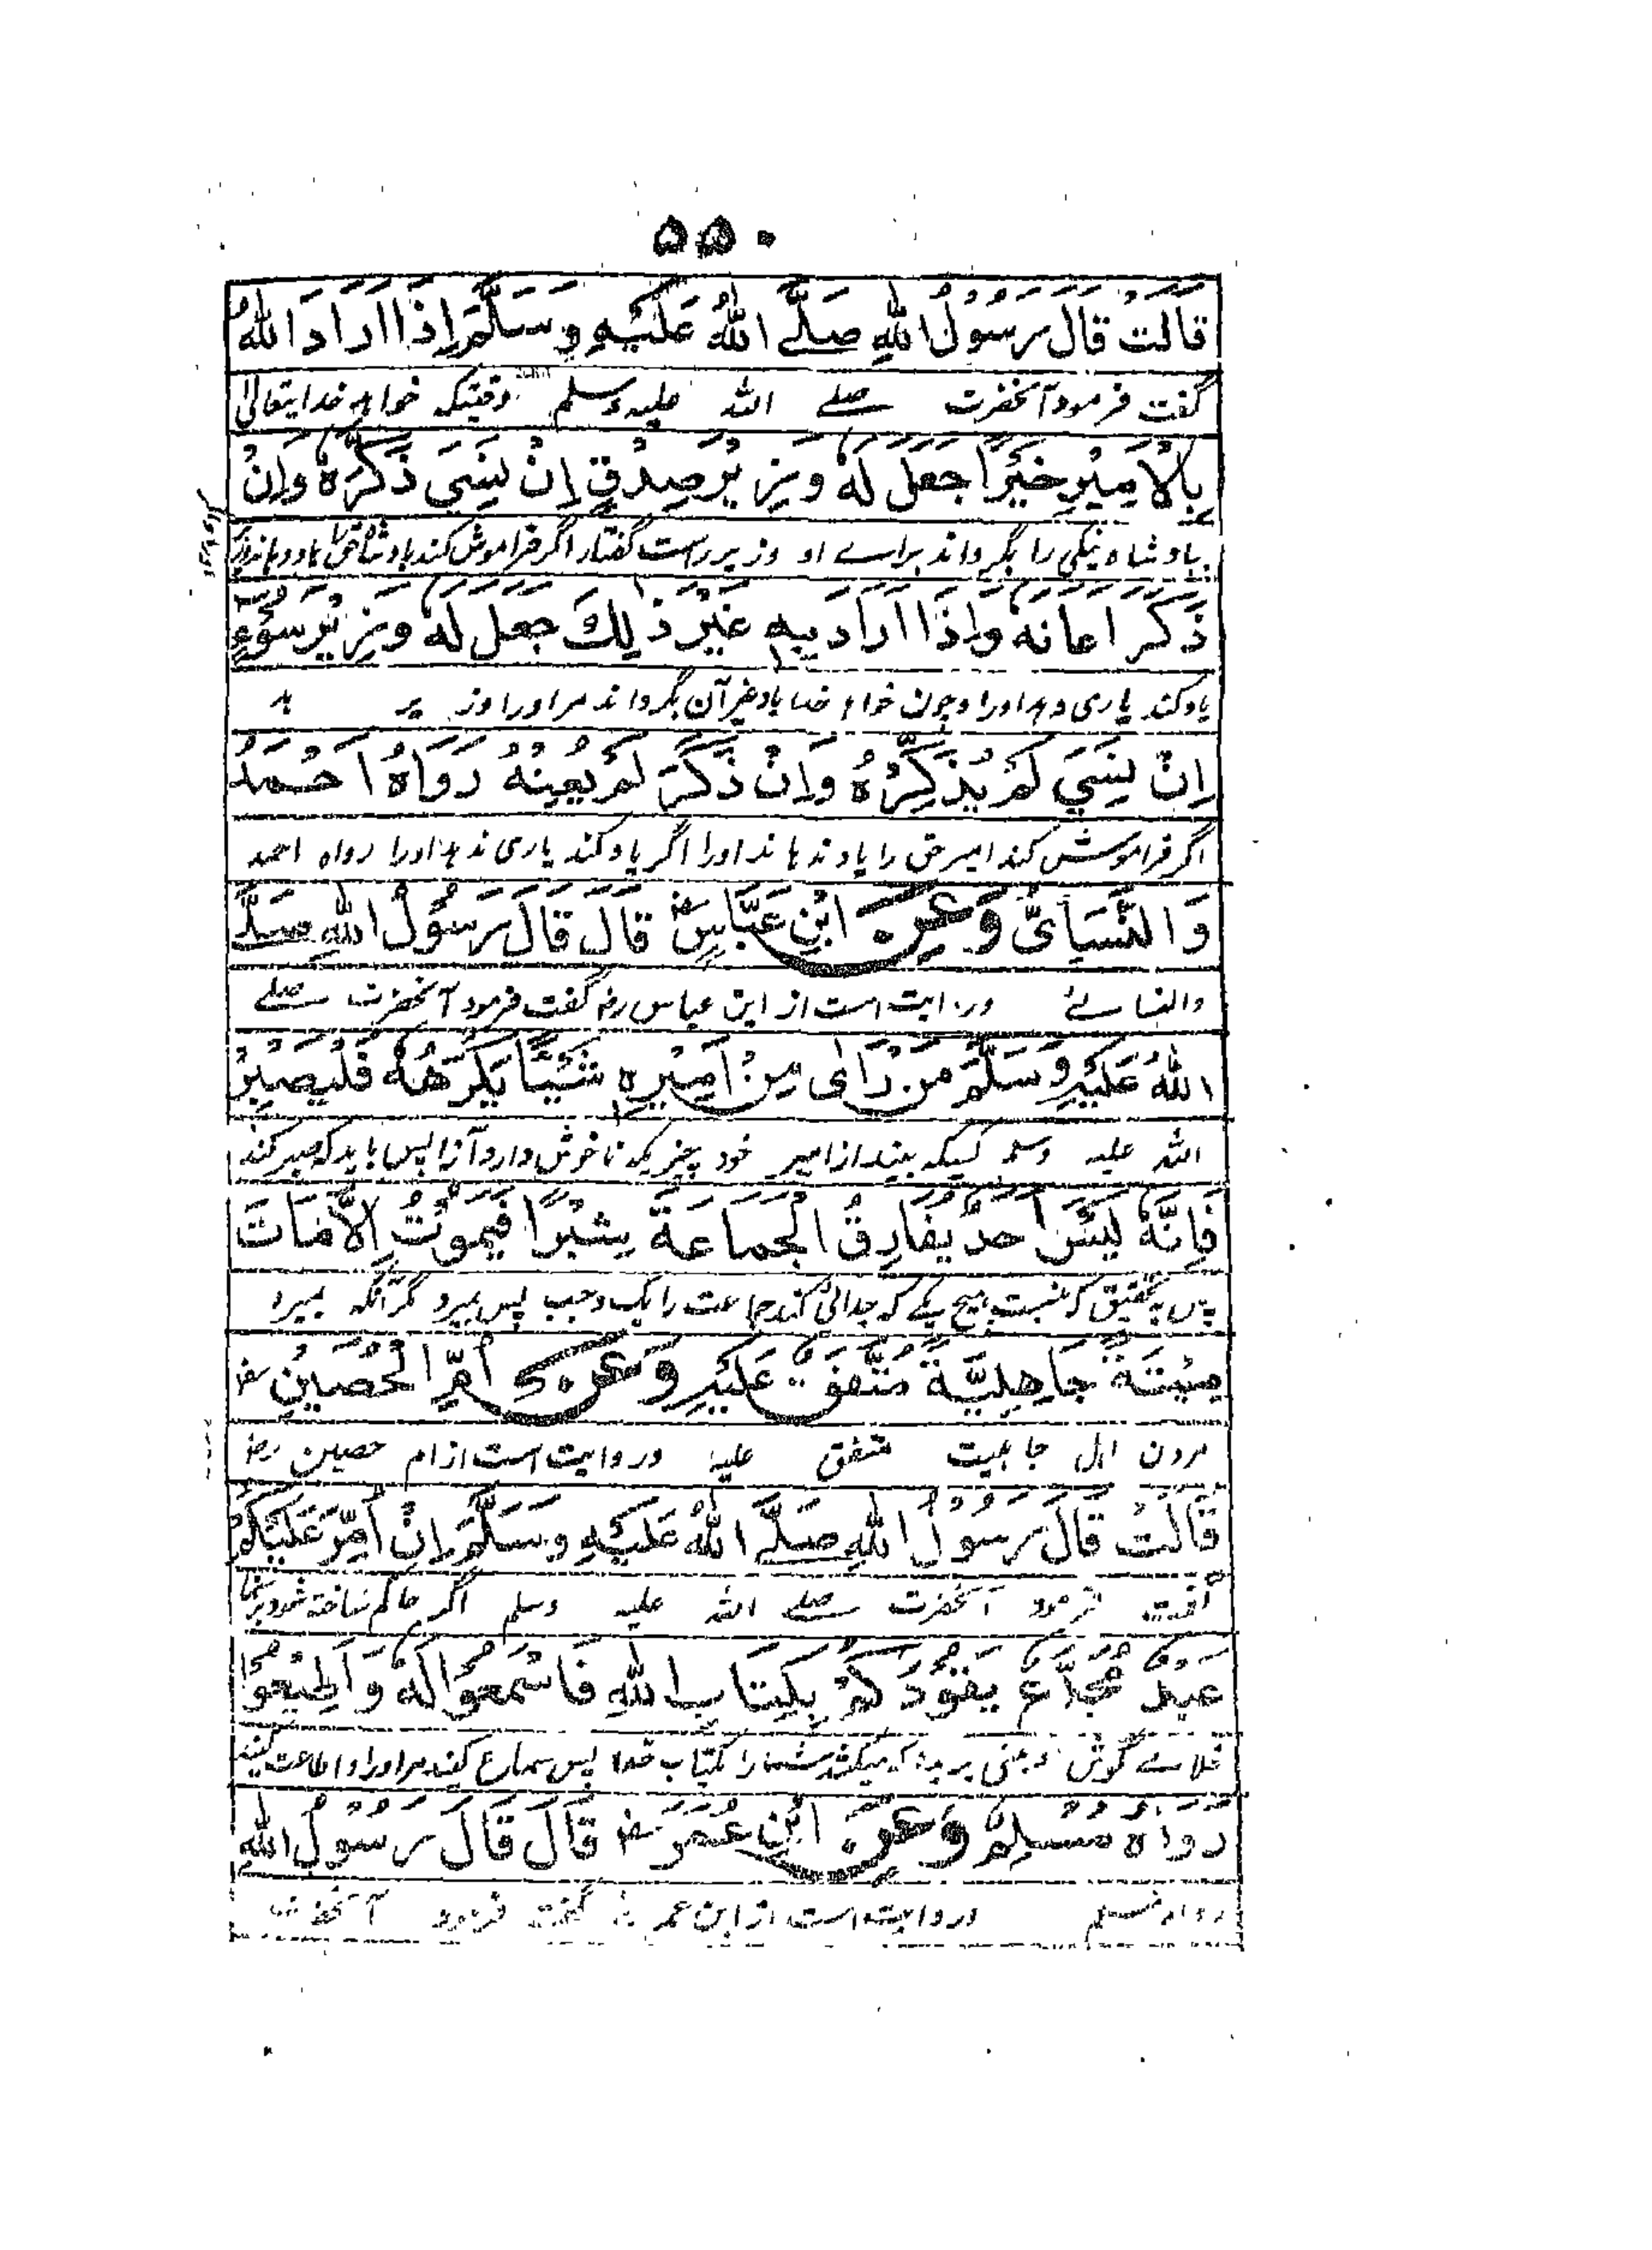 ۵۵۰
قَالَتْ قَالَ رَسُوْلُ اللهِ صَلَّے اللهُ عَلَيْهِ وَسَلَّمَ اِذَا اَرَادَ اللهُ
گفت فرمود آنحضرت صلے الله علیہ وسلم وقتیکہ خواہد خدایتعالیٰ
بِالْاَمِيْرِ خَيْرًا جَعَلَ لَهٗ وَزِيْرَ صِدْقٍ اِنْ نَسِيَ ذَكَّرَهٗ وَاِنْ
بپادشاہ نیکی را بگرداند براے او وزیر راست گفتار اگر فراموش کند بادشاہ حق را
ذَكَرَ اَعَانَهٗ وَاِذَا اَرَادَ بِهٖ غَيْرَ ذٰلِكَ جَعَلَ لَهٗ وَزِيْرَ سُوْءٍ
یاد کند یاری دہد اورا وچون خواہد خدا باو غیر آن بگرداند مر اورا وزیر بد
اِنْ نَسِيَ لَمْ يُذَكِّرْهُ وَاِنْ ذَكَرَ لَمْ يُعِنْهُ رَوَاهُ اَحْمَدُ
اگر فراموش کند امیر حق را یاد ندہاند اورا اگر یاد کند یاری ندہد اورا رواہ احمد
وَالنَّسَائِیُّ وَعَنِ ابْنِ عَبَّاسٍ رض قَالَ قَالَ رَسُوْلُ اللهِ صَلَّے
والنسائے وروایت است از ابن عباس رض گفت فرمود آنحضرت صلے
اللهُ عَلَيْهِ وَسَلَّمَ مَنْ رَاٰى مِنْ اَمِيْرِهٖ شَيْئًا يَكْرَهُهٗ فَلْيَصْبِرْ
الله علیہ وسلم کسیکہ بیند از امیر خود چیزیکہ ناخوش دارد آنرا پس باید کہ صبر کند
فَاِنَّهٗ لَيْسَ اَحَدٌ يُفَارِقُ الْجَمَاعَةَ شِبْرًا فَيَمُوْتُ اِلَّا مَاتَ
پس بتحقیق کہ نیست ہیچ یکے کہ جدائی کند جماعت را یک وجب پس بمیرد مگر آنکہ بمیرد
مِيْتَةً جَاهِلِيَّةً مُتَّفَقٌ عَلَيْهِ وَعَنْ اُمِّ الْحُصَيْنِ رض
مردن اہل جاہلیت متفق علیہ وروایت است از ام حصین رض
قَالَتْ قَالَ رَسُوْلُ اللهِ صَلَّے اللهُ عَلَيْهِ وَسَلَّمَ اِنْ اُمِّرَ عَلَيْكُمْ
گفت فرمود آنحضرت صلے الله علیہ وسلم اگر حاکم ساختہ شود برشما
عَبْدٌ مُجَدَّعٌ يَقُوْدُكُمْ بِكِتَابِ اللهِ فَاسْمَعُوْا لَهٗ وَاَطِيْعُوْا
غلامے گوش وبینی بریدہ کہ میکشد شمارا بکتاب خدا پس سماع کنید مر اورا واطاعت کنید
رَوَاهُ مُسْلِمٌ وَعَنِ ابْنِ عُمَرَ رض قَالَ قَالَ رَسُوْلُ اللهِ
رواہ مسلم وروایت است از ابن عمر رض گفت فرمود آنحضرت